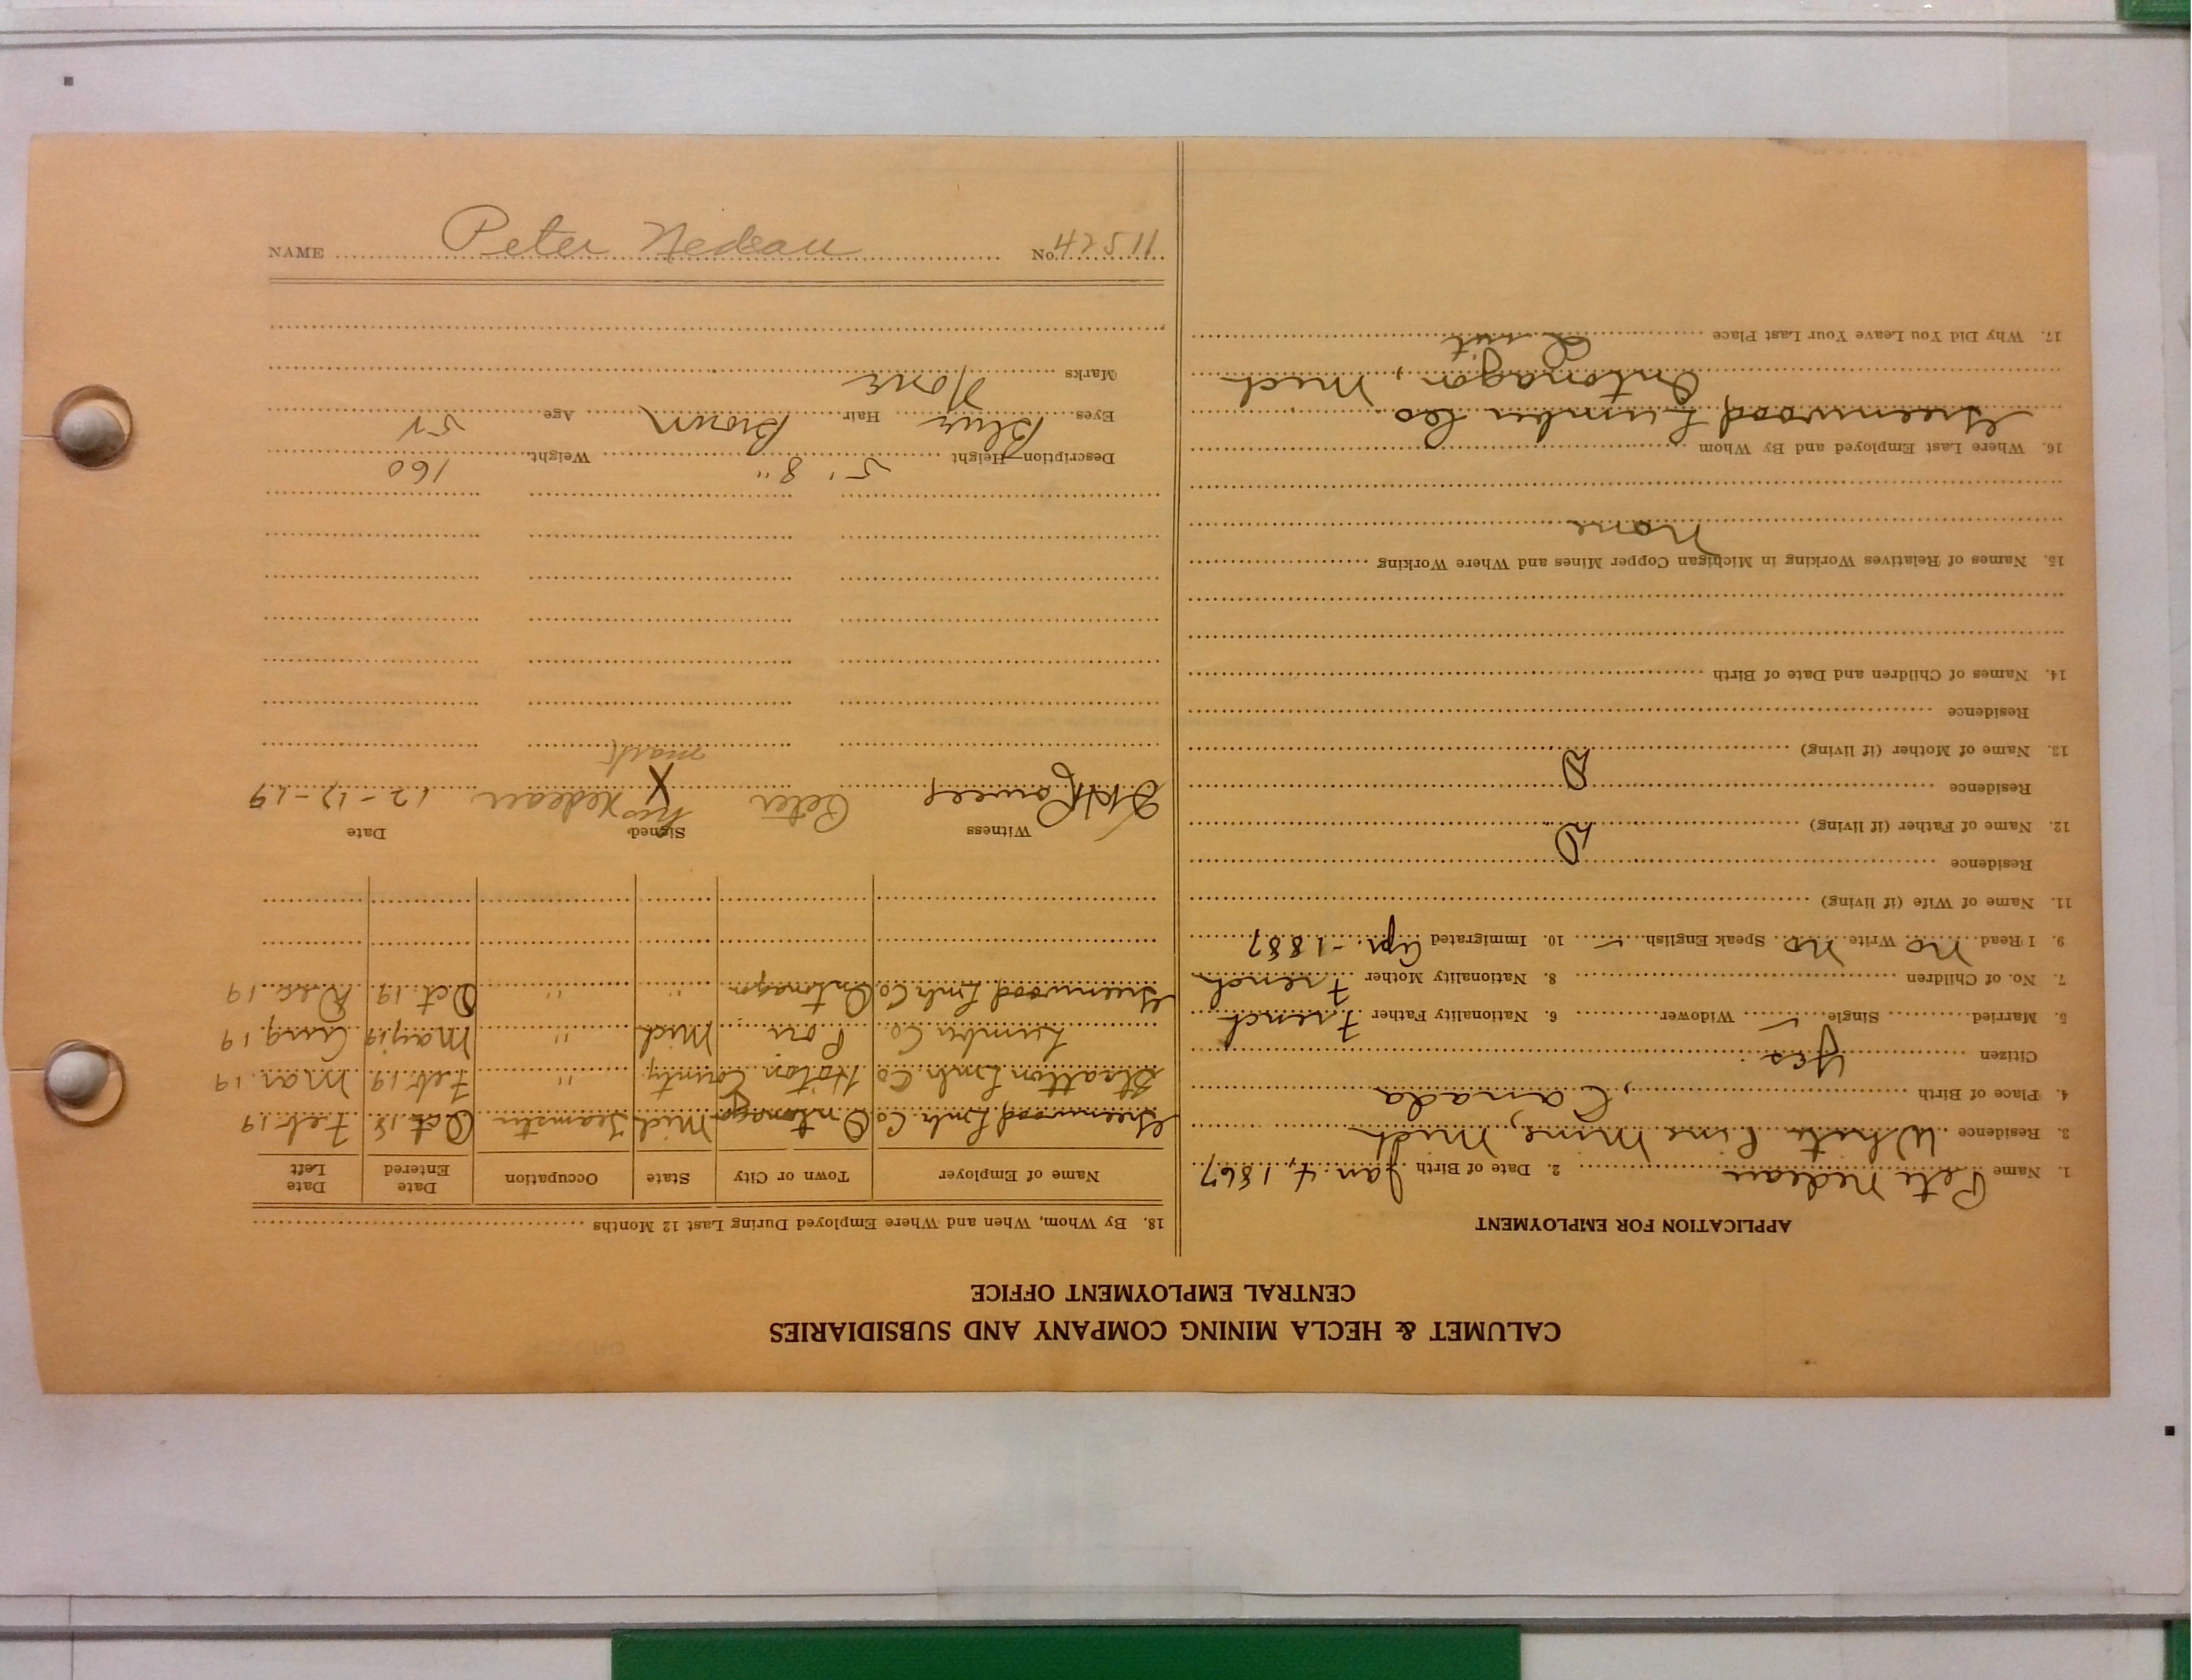 CALUMET & HECLA MINING COMPANY AND SUBSIDIARIES
CENTRAL EMPLOYMENT OFFICE
APPLICATION FOR EMPLOYMENT
1. Name Pete Nedeau 2. Date of Birth Jan. 4, 1867
3. Residence White Pine Mine, Mich
4. Place of Birth , Canada
Citizen Yes
5. Married Single ✓ Widower 6. Nationality Father French
7. No. of Children 8. Nationality Mother French
9. I Read No Write No Speak English ✓ 10. Immigrated Apr. - 1887
11. Name of Wife (if living)
Residence
12. Name of Father (if living) D
Residence
13. Name of Mother (if living) D
Residence
14. Names of Children and Date of Birth
15. Names of Relatives Working in Michigan Copper Mines and Where Working
None
16. Where Last Employed and By Whom
Greenwood Lumber Co
Ontonagon, Mich
17. Why Did You Leave Your Last Place Quit
18. By Whom, When and Where Employed During Last 12 Months
Name of Employer Town or City State Occupation Date Entered Date Left
Greenwood Lmbr. Co Ontonagon Mich Teamster Oct. 18 Feb. 19
Stratton Lmbr. Co County " Feb. 19 Mar. 19
Lumber Co. Mich " May. 19 Aug. 19
Greenwood Lmbr. Co Ontonagon " " Oct. 19 Dec. 19
Witness Signed Date
Peter his X mark Nedeau 12-17-19
Description—Height 5' 8" Weight 160
Eyes Blue Hair Brown Age 52
Marks None
NAME Peter Nedeau No. 42511